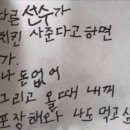 다른 선수가
치킨 사준다고하면
가.
나 돈 없어
그리고 올때 내께
포장해와 나도 먹고싶